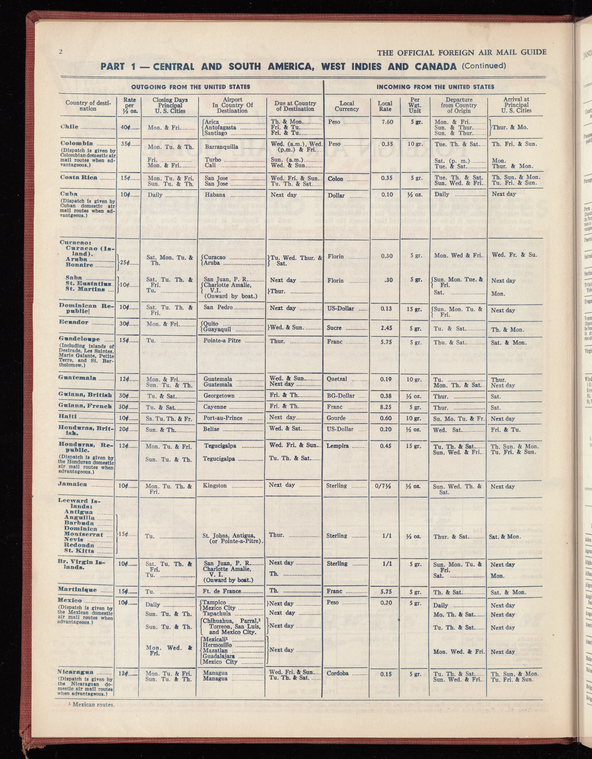 2
THE OFFICIAL FOREIGN AIR MAIL GUIDE
PART 1 — CENTRAL AND SOUTH AMERICA, WEST INDIES AND CANADA (Continued)
OUTGOING FROM THE UNITED STATES INCOMING FROM THE UNITED STATES
Country of desti-nation Rate per ½ oz. Closing Days Principal U. S. Cities Airport In Country Of Destination Due at Country of Destination Local Currency Local Rate Per Wgt. Unit Departure from Country of Origin Arrival at Principal U. S. Cities
Chile 40¢ Mon. & Fri. {Arica Th. & Mon. Peso 7.60 5 gr. Mon. & Fri. }Thur. & Mo.
Antofagasta Fri. & Tu. Sun. & Thur.
Santiago Fri. & Tu. Sun. & Thur.
Colombia 35¢ Mon. Tu. & Th. Barranquilla Wed. (a.m.), Wed. (p.m.) & Fri. Peso 0.35 10 gr. Tue. Th. & Sat. Th. Fri. & Sun.
(Dispatch is given by Colombian domestic air mail routes when ad-vantageous.)
Fri. Turbo Sun. (a.m.) Sat. (p. m.) Mon.
Mon. & Fri. Cali Wed. & Sun. Mon. & Sat. Thur. & Mon.
Costa Rica 15¢ Mon. Tu. & Fri. San Jose Wed. Fri. & Sun. Colon 0.55 5 gr. Tue. Th. & Sat. Th. Sun. & Mon.
Sun. Tu. & Th. San Jose Tu. Th. & Sat. Sun. Wed. & Fri. Tu. Fri. & Sun.
Cuba 10¢ Daily Habana Next day Dollar 0.10 ½ oz. Daily Next day
(Dispatch is given by Cuban domestic air mail routes when ad-vantageous.)
Curacao:
Curacao (Is-land). }25¢ Sat. Mon. Tu. & Th. {Curacao }Tu, Wed. Thur. & Sat. Florin 0.30 5 gr. Mon. Wed & Fri. Wed. Fr. & Su.
Aruba {Aruba
Bonaire
Saba }10¢ Sat. Tu. Th. & Fri. San Juan, P. R. Next day Florin .30 5 gr. {Sun. Mon. Tue. & Fri. Next day
St. Eustatius Tu. {Charlotte Amalie, V.I. }Thur. Sat. Mon.
St. Martins (Onward by boat.)
Dominican Re-public 10¢ Sat. Tu. Th. & Fri. San Pedro Next day US-Dollar 0.13 15 gr. {Sun. Mon. Tu. & Fri. Next day
Ecuador 30¢ Mon. & Fri. {Quito }Wed. & Sun. Sucre 2.45 5 gr. Tu. & Sat. Th. & Mon.
{Guayaquil
Guadeloupe 15¢ Tu. Pointe-a Pitre Thur. Franc 5.75 5 gr. Thu. & Sat. Sat. & Mon.
(Including islands of Desirade, Les Saintes, Marie Galante, Petite Terre, and St. Bar-tholomew.)
Guatemala 12¢ Mon. & Fri. Guatemala Wed. & Sun. Quetzal 0.19 10 gr. Tu. Thur.
Sun. Tu. & Th. Guatemala Next day Mon. Th. & Sat. Next day
Guiana, British 30¢ Tu. & Sat. Georgetown Fri. & Th. BG-Dollar 0.38 ½ oz. Thur. Sat.
Guiana, French 30¢ Tu. & Sat. Cayenne Fri. & Th. Franc 8.25 5 gr. Thur. Sat.
Haiti 10¢ Sa. Tu. Th. & Fr. Port-au-Prince Next day Gourde 0.60 10 gr. Su. Mo. Tu. & Fr. Next day
Honduras, Brit-ish. 20¢ Sun. & Th. Belize Wed. & Sat. US-Dollar 0.20 ½ oz. Wed. Sat. Fri. & Tu.
Honduras, Re-public. 12¢ Mon. Tu. & Fri. Tegucigalpa Wed. Fri. & Sun. Lempira 0.45 15 gr. Tu. Th. & Sat. Th. Sun. & Mon.
Sun. Wed. & Fri. Tu. Fri. & Sun.
(Dispatch is given by the Honduran domestic air mail routes when advantageous.) Sun. Tu. & Th. Tegucigalpa Tu. Th. & Sat.
Jamaica 10¢ Mon. Tu. Th. & Fri. Kingston Next day Sterling 0/7½ ½ oz. Sun. Wed. Th. & Sat. Next day
Leeward Is-lands: }15¢ Tu. St. Johns, Antigua, (or Pointe-a-Pitre). Thur. Sterling 1/1 ½ oz. Thur. & Sat. Sat. & Mon.
Antigua
Anguilla
Barbuda
Dominica
Montserrat
Nevis
Redonda
St. Kitts
Br. Virgin Is-lands. 10¢ Sat. Tu. Th. & Fri. San Juan, P. R. Next day Sterling 1/1 5 gr. Sun. Mon. Tu. & Fri. Next day
Tu. Charlotte Amalie, V. I. Th. Sat. Mon.
(Onward by boat.)
Martinique 15¢ Tu. Ft. de France Th. Franc 5.75 5 gr. Th. & Sat. Sat. & Mon.
Mexico 10¢ Daily {Tampico }Next day Peso 0.20 5 gr. Daily Next day
{Mexico City
(Dispatch is given by the Mexican domestic air mail routes when advantageous.)
Sun. Tu. & Th. Tapachula Next day Mo. Th. & Sat. Next day
Sun. Tu. & Th. {Chihuahua, Parral,¹ Torreon, San Luis, and Mexico City. }Next day Tu. Th. & Sat. Next day
Mon. Wed. & Fri. {Mexicali¹ }Next day Mon. Wed. & Fri. Next day
Hermosillo
Mazatlan
Guadalajara
Mexico City
Nicaragua 12¢ Mon. Tu. & Fri. Managua Wed. Fri. & Sun. Cordoba 0.15 5 gr. Tu. Th. & Sat. Th. Sun. & Mon.
Sun. Tu. & Th. Managua Tu. Th. & Sat. Sun. Wed. & Fri. Tu. Fri. & Sun.
(Dispatch is given by the Nicaraguan do-mestic air mail routes when advantageous.)
¹ Mexican routes.